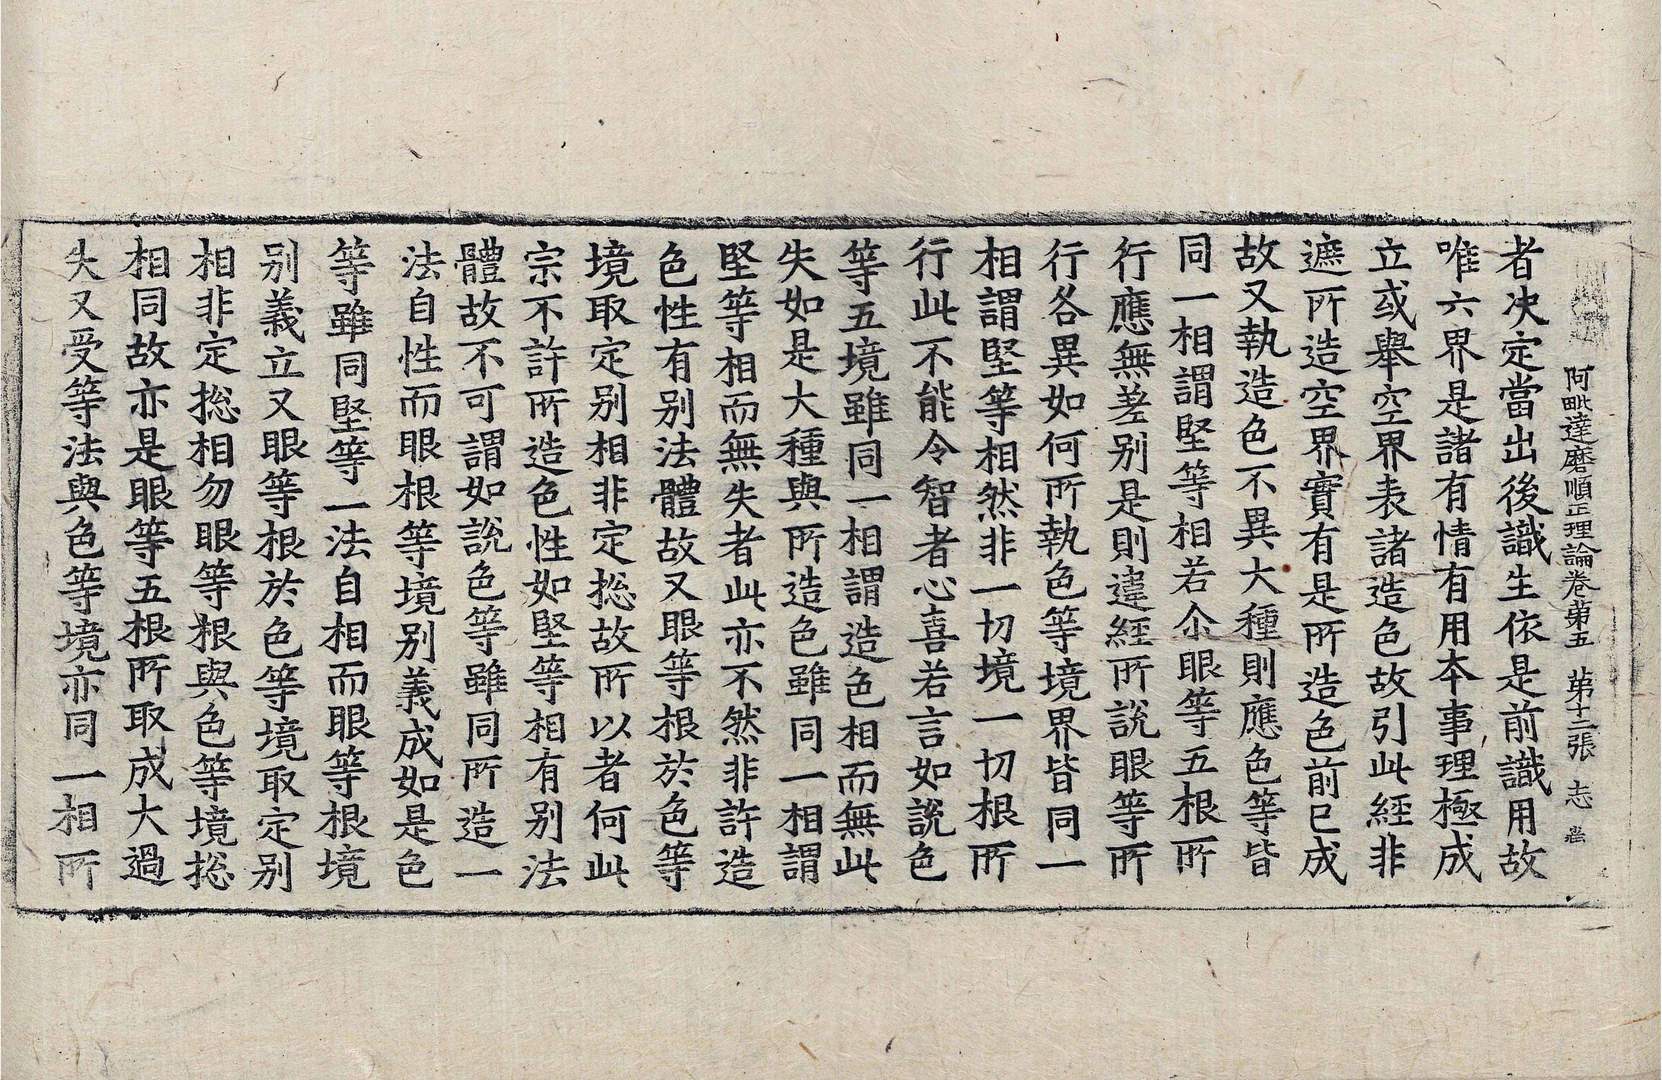 阿毗達磨順正理論卷第五 第十二張 志
者决定當出後識生依是前識用故
唯六界是諸有情有用本事理極成
立或舉空界表諸造色故引此經非
遮所造空界實有是所造色前已成
故又執造色不異大種則應色等皆
同一相謂堅等相若尒眼等五根所
行應無差别是則違經所說眼等所
行各異如何所執色等境界皆同一
相謂堅等相然非一切境一切根所
行此不能令智者心喜若言如說色
等五境雖同一相謂造色相而無此
失如是大種與所造色雖同一相謂
堅等相而無失者此亦不然非許造
色性有别法體故又眼等根於色等
境取定别相非定捴故所以者何此
宗不許所造色性如堅等相有别法
體故不可謂如說色等雖同所造一
法自性而眼根等境别義成如是色
等雖同堅等一法自相而眼等根境
别義立又眼等根於色等境取定别
相非定捴相勿眼等根與色等境捴
相同故亦是眼等五根所取成大過
失又受等法與色等境亦同一相所